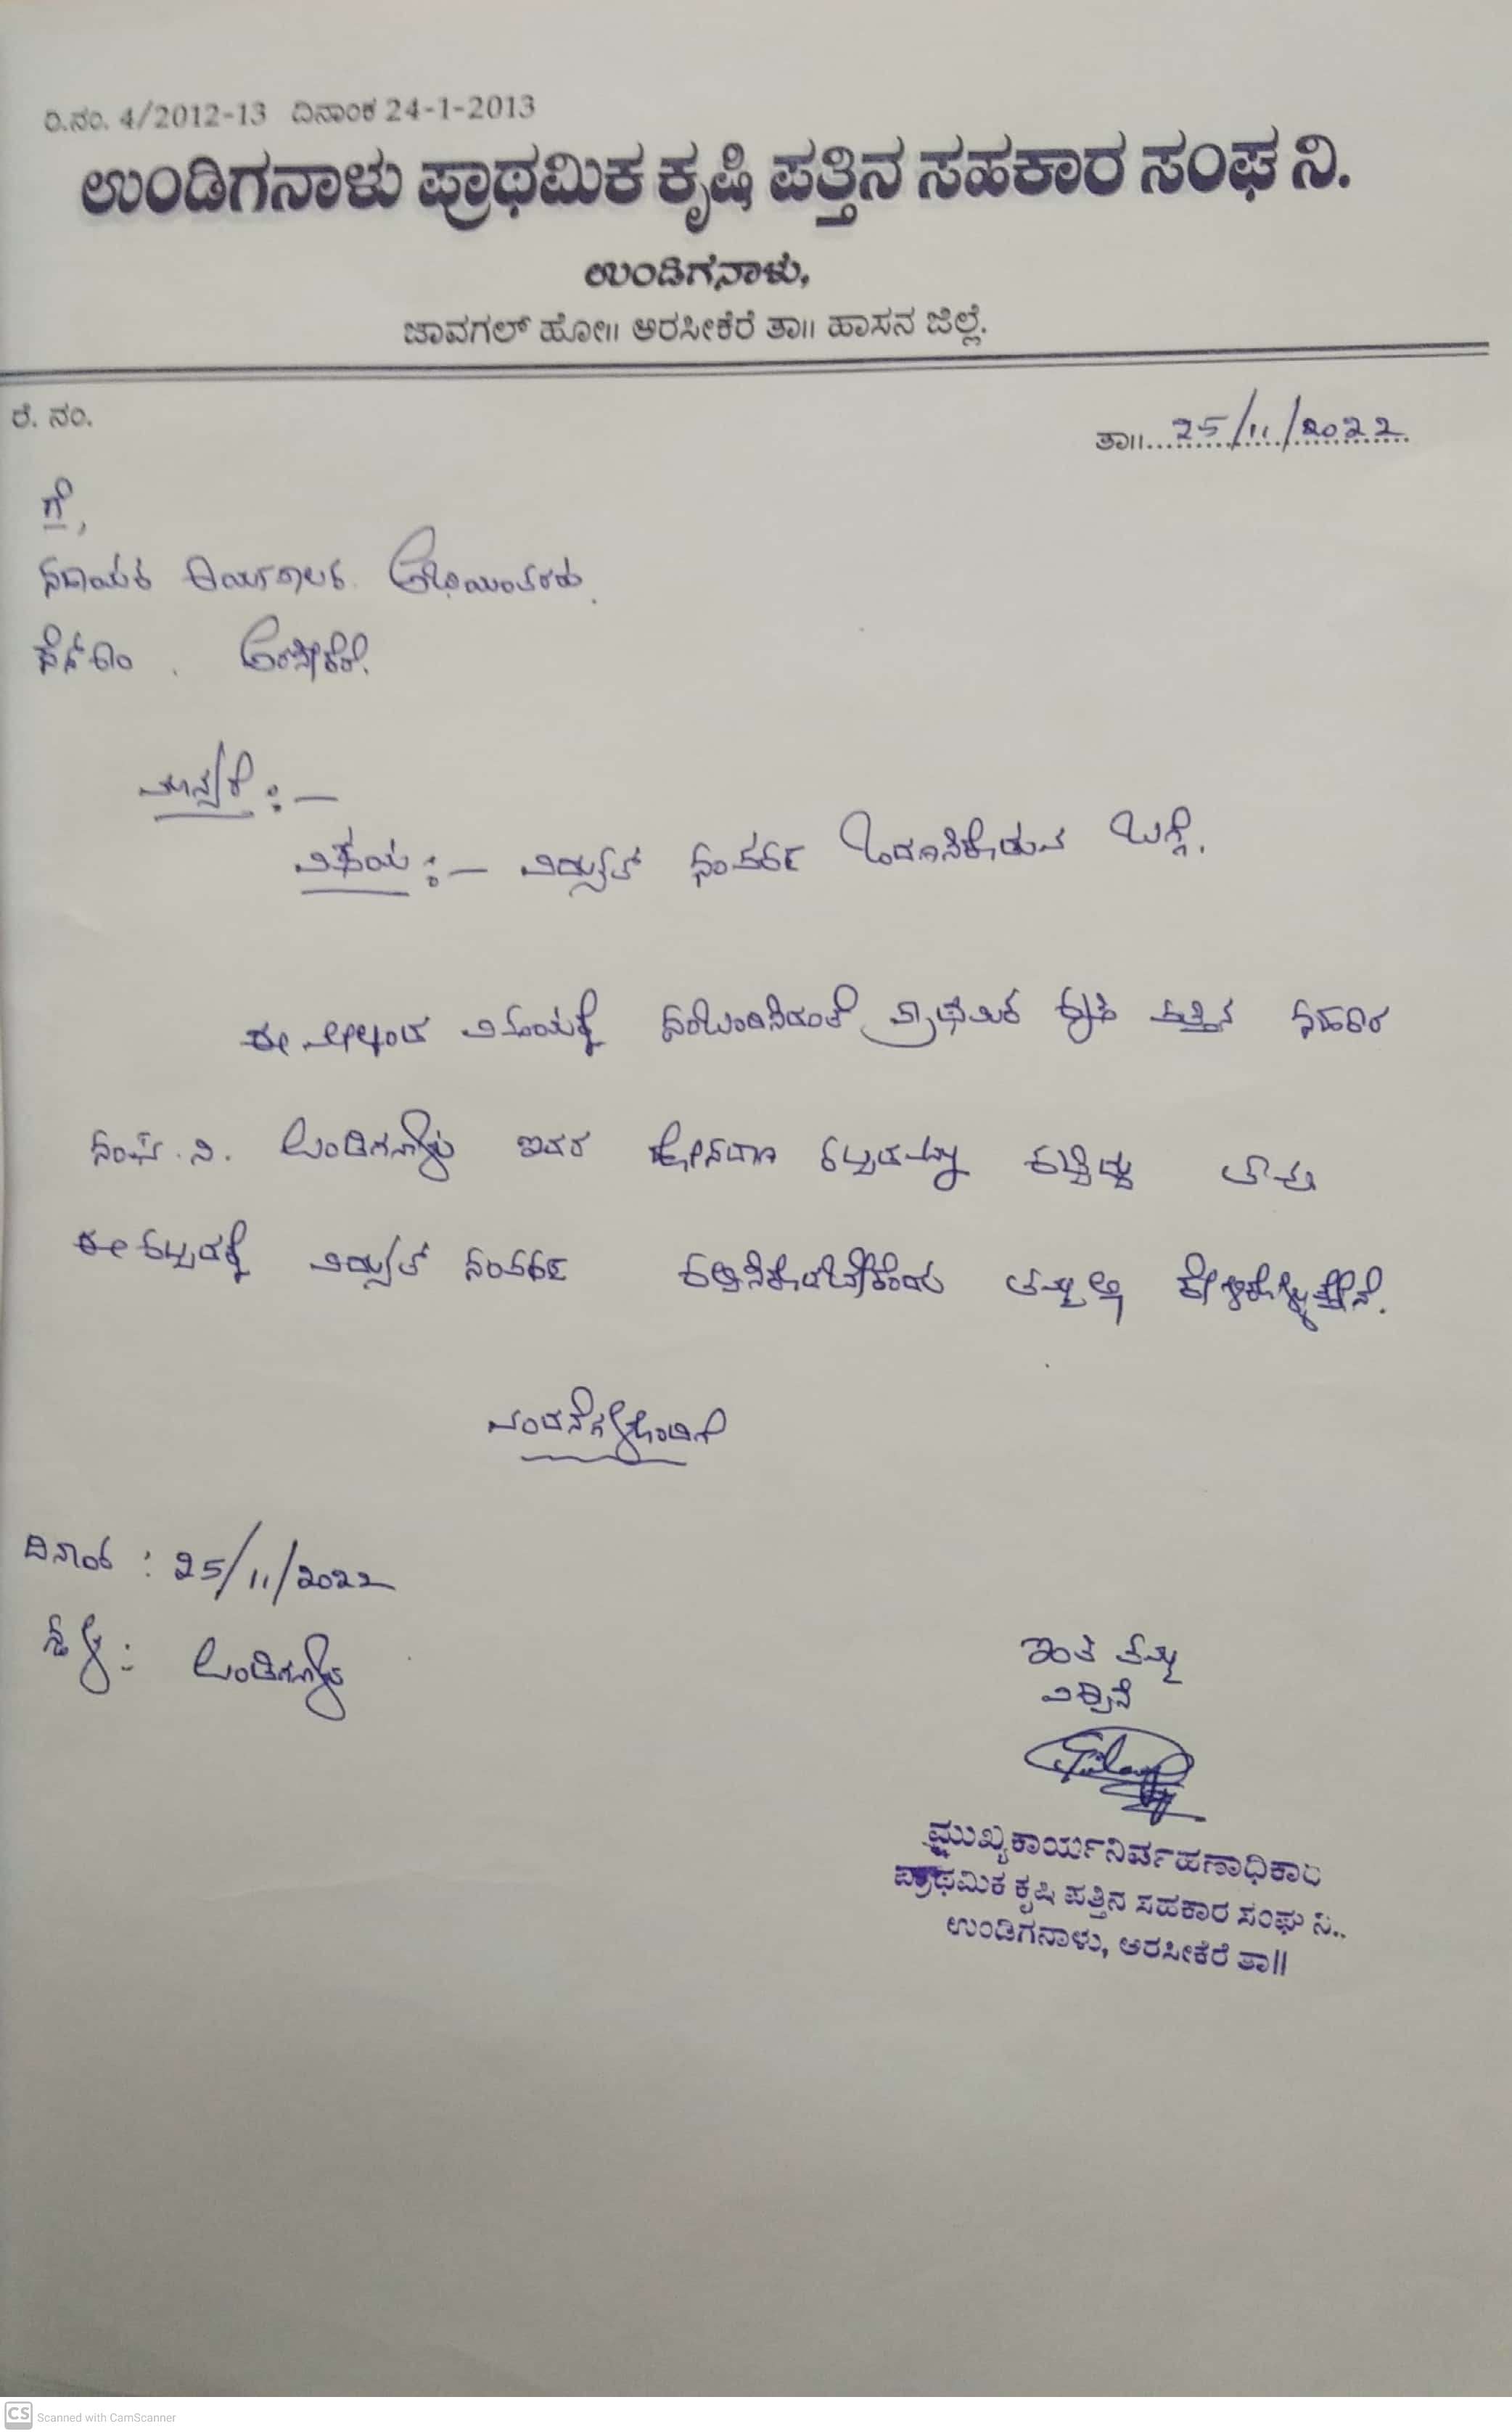 ರಿ.ನಂ. 4/2012-13 ದಿನಾಂಕ 24-1-2013
ಉಂಡಿಗನಾಳು ಪ್ರಾಥಮಿಕ ಕೃಷಿ ಪತ್ತಿನ ಸಹಕಾರ ಸಂಘ ನಿ.
ಉಂಡಿಗನಾಳು,
ಜಾವಗಲ್ ಹೋ॥ ಅರಸೀಕೆರೆ ತಾ॥ ಹಾಸನ ಜಿಲ್ಲೆ.
ರೆ. ನಂ.
ತಾ॥ 25/11/2022
ಗೆ,
ಸಹಾಯಕ ಕಾರ್ಯಪಾಲಕ ಅಭಿಯಂತರರು.
ಸೆಸ್ಕಾಂ . ಅರಸೀಕೆರೆ.
ಮಾನ್ಯರೆ :-
ವಿಷಯ :- ವಿದ್ಯುತ್ ಸಂಪರ್ಕ ಒದಗಿಸಿಕೊಡುವ ಬಗ್ಗೆ.
ಈ ಮೇಲ್ಕಂಡ ವಿಷಯಕ್ಕೆ ಸಂಬಂಧಿಸಿದಂತೆ ಪ್ರಾಥಮಿಕ ಕೃಷಿ ಪತ್ತಿನ ಸಹಕಾರ
ಸಂಘ. ನಿ. ಉಂಡಿಗನಾಳು ಇವರ ಹೊಸದಾಗಿ ಕಟ್ಟಡವನ್ನು ಕಟ್ಟಿದ್ದು
ಈ ಕಟ್ಟಡಕ್ಕೆ ವಿದ್ಯುತ್ ಸಂಪರ್ಕ ಕಲ್ಪಿಸಿಕೊಡಬೇಕೆಂದು ತಮ್ಮಲ್ಲಿ ಕೇಳಿಕೊಳ್ಳುತ್ತೇನೆ.
ವಂದನೆಗಳೊಂದಿಗೆ
ದಿನಾಂಕ : 25/11/2022
ಸ್ಥಳ : ಉಂಡಿಗನಾಳು
ಇಂತಿ ತಮ್ಮ
ವಿಶ್ವಾಸಿ
ಮುಖ್ಯಕಾರ್ಯನಿರ್ವಹಣಾಧಿಕಾರಿ
ಪ್ರಾಥಮಿಕ ಕೃಷಿ ಪತ್ತಿನ ಸಹಕಾರ ಸಂಘ ನಿ..
ಉಂಡಿಗನಾಳು, ಅರಸೀಕೆರೆ ತಾ||
CS Scanned with CamScanner